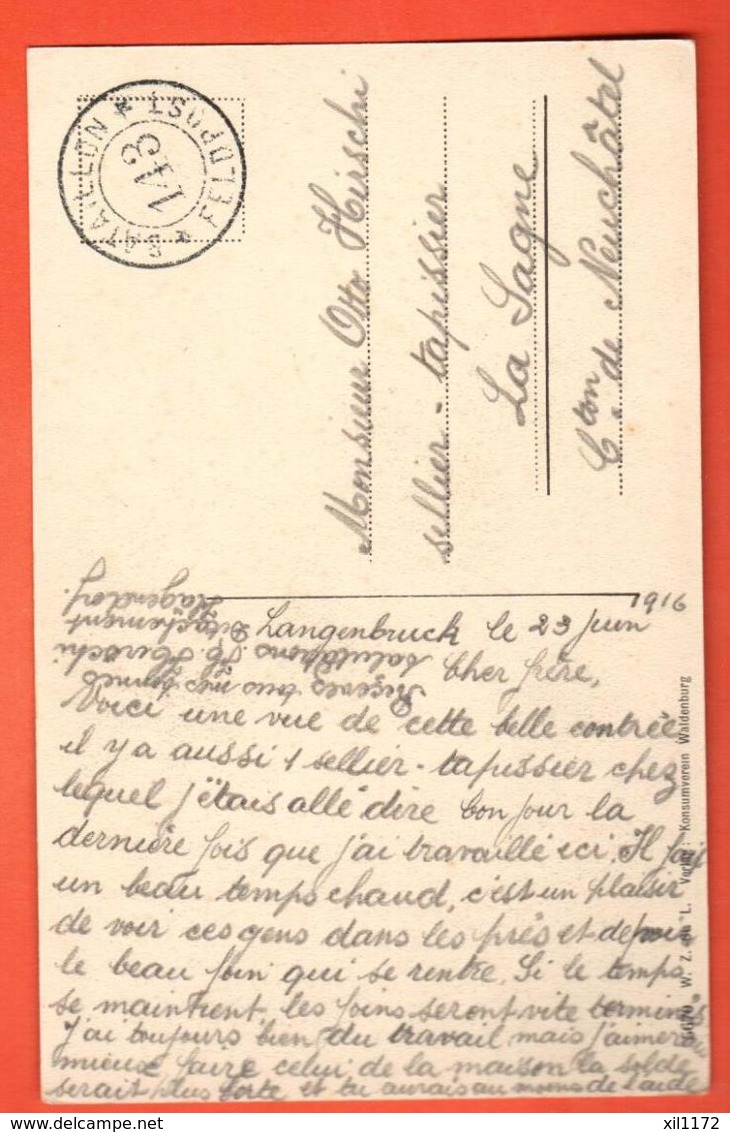 BATAILLON * FELDPOST *
143
Monsieur Otto Hirschi
sellier - tapissier
La Sagne
Cton. de Neuchâtel
Langenbruck le 23 juin 1916
Cher frère,
Voici une vue de cette belle contrée
il y a aussi 1 sellier-tapissier chez
lequel j'étais allé dire bonjour la
dernière fois que j'ai travaillé ici. Il fait
un beau temps chaud, c'est un plaisir
de voir ces gens dans les prés et de voir
le beau foin qui se rentre. Si le temps
se maintient, les foins seront vite terminés
J'ai toujours bien du travail mais j'aimerais
mieux faire celui de la maison la solde
serait plus forte et tu aurais au moins de l'aide
Recevez tous mes bonnes
salutations Hirschi
Détachement
Hägendorf.
W. Z. Verlag: Konsumverein Waldenburg
xil1172